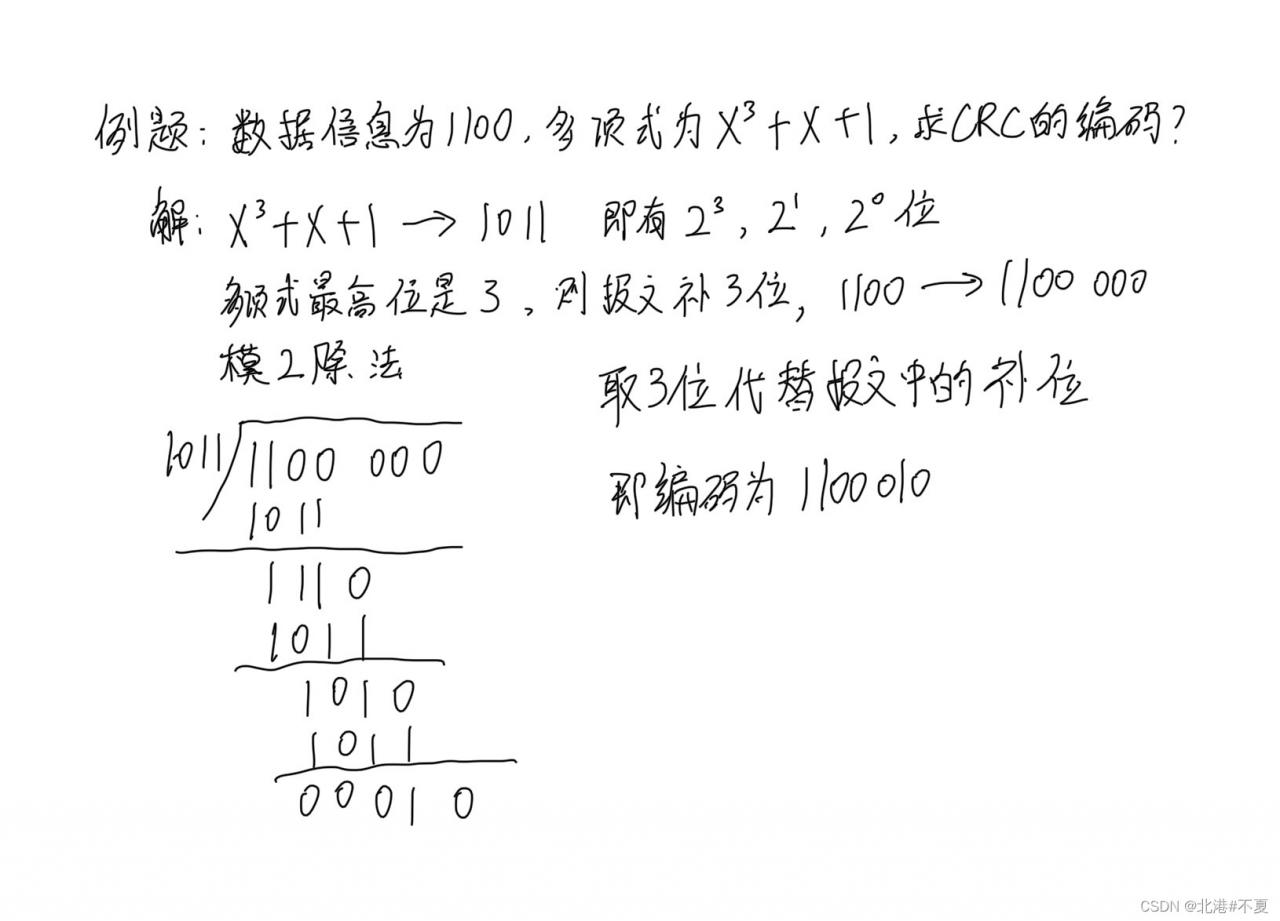 例题：数据信息为1100，多项式为X³+X+1，求CRC的编码？
解：X³+X+1 → 1011 即有 2³，2¹，2⁰位
多项式最高位是3，则报文补3位，1100 → 1100 000
模2除法
取3位代替报文中的补位
即编码为 1100010
1011 1100 000
1011
1110
1011
1010
1011
00010
CSDN @北港#不夏